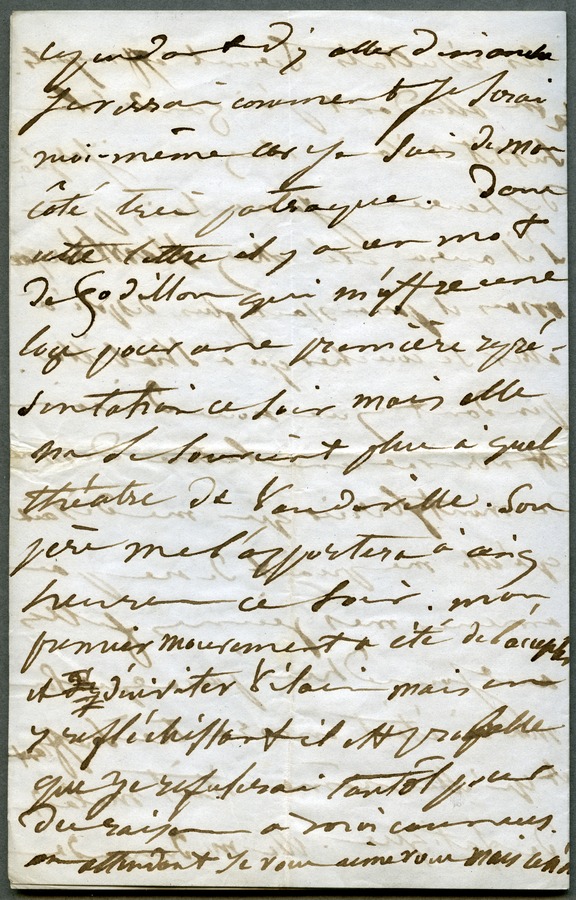 cependant d'y aller dimanche
Je ne sai comment Je serai
moi-même car je suis de mon
côté très patraque. Dans
cette lettre il y a un mot
de Godillon qui m'offre une
loge pour une première repré-
sentation ce soir mais elle
ne se souvient plus à quel
théatre de Vaudeville. Son
père me l'apportera à cinq
heures ce soir. mon
premier mouvement a été de l'accepter
et d'y inviter Vilain mais en
y refléchissant il est probable
que je refuserai tantôt pour
des raisons a moi connues.
en attendant Je vous aime vous mais